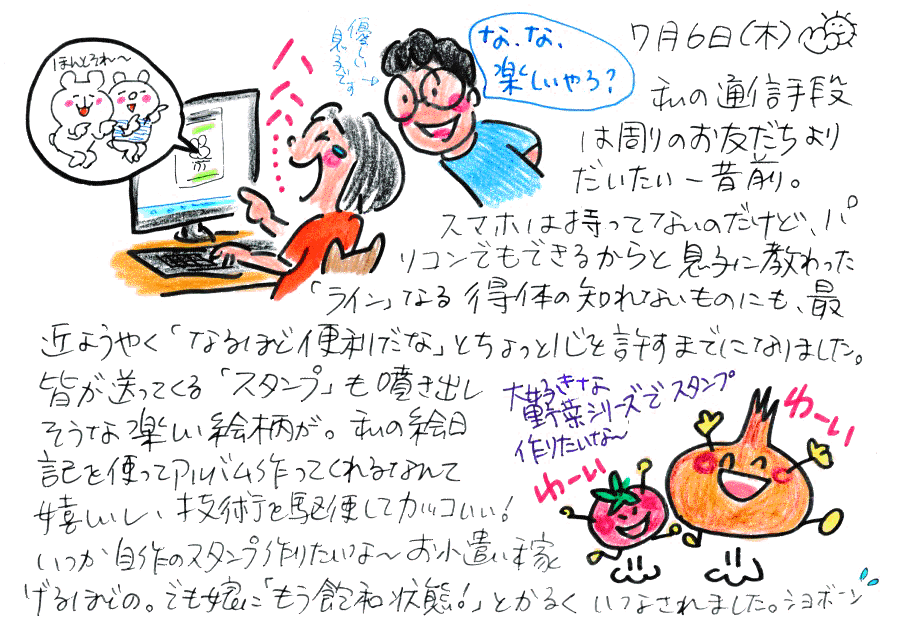 7月6日(木)
私の通信手段
は周りのお友だちより
だいたい一昔前。
スマホは持ってないのだけど、パ
ソコンでもできるからと息子に教わった
「ライン」なる得体の知れないものにも、最
近ようやく「なるほど便利だな」とちょっと心を許すまでになりました。
皆が送ってくる「スタンプ」も噴き出し
そうな楽しい絵柄が。私の絵日
記を使ってアルバム作ってくれるなんて
嬉しいし、技術を駆使してカッコいい!
いつか自作のスタンプ作りたいな~お小遣い稼
げるほどの。でも娘に「もう飽和状態!」とかるくいなされました。ショボーン
ほんとそれ~
ハハハ
優しい
息子です
な、な、
楽しいやろ?
大好きな
野菜シリーズでスタンプ
作りたいな~
わーい
わーい